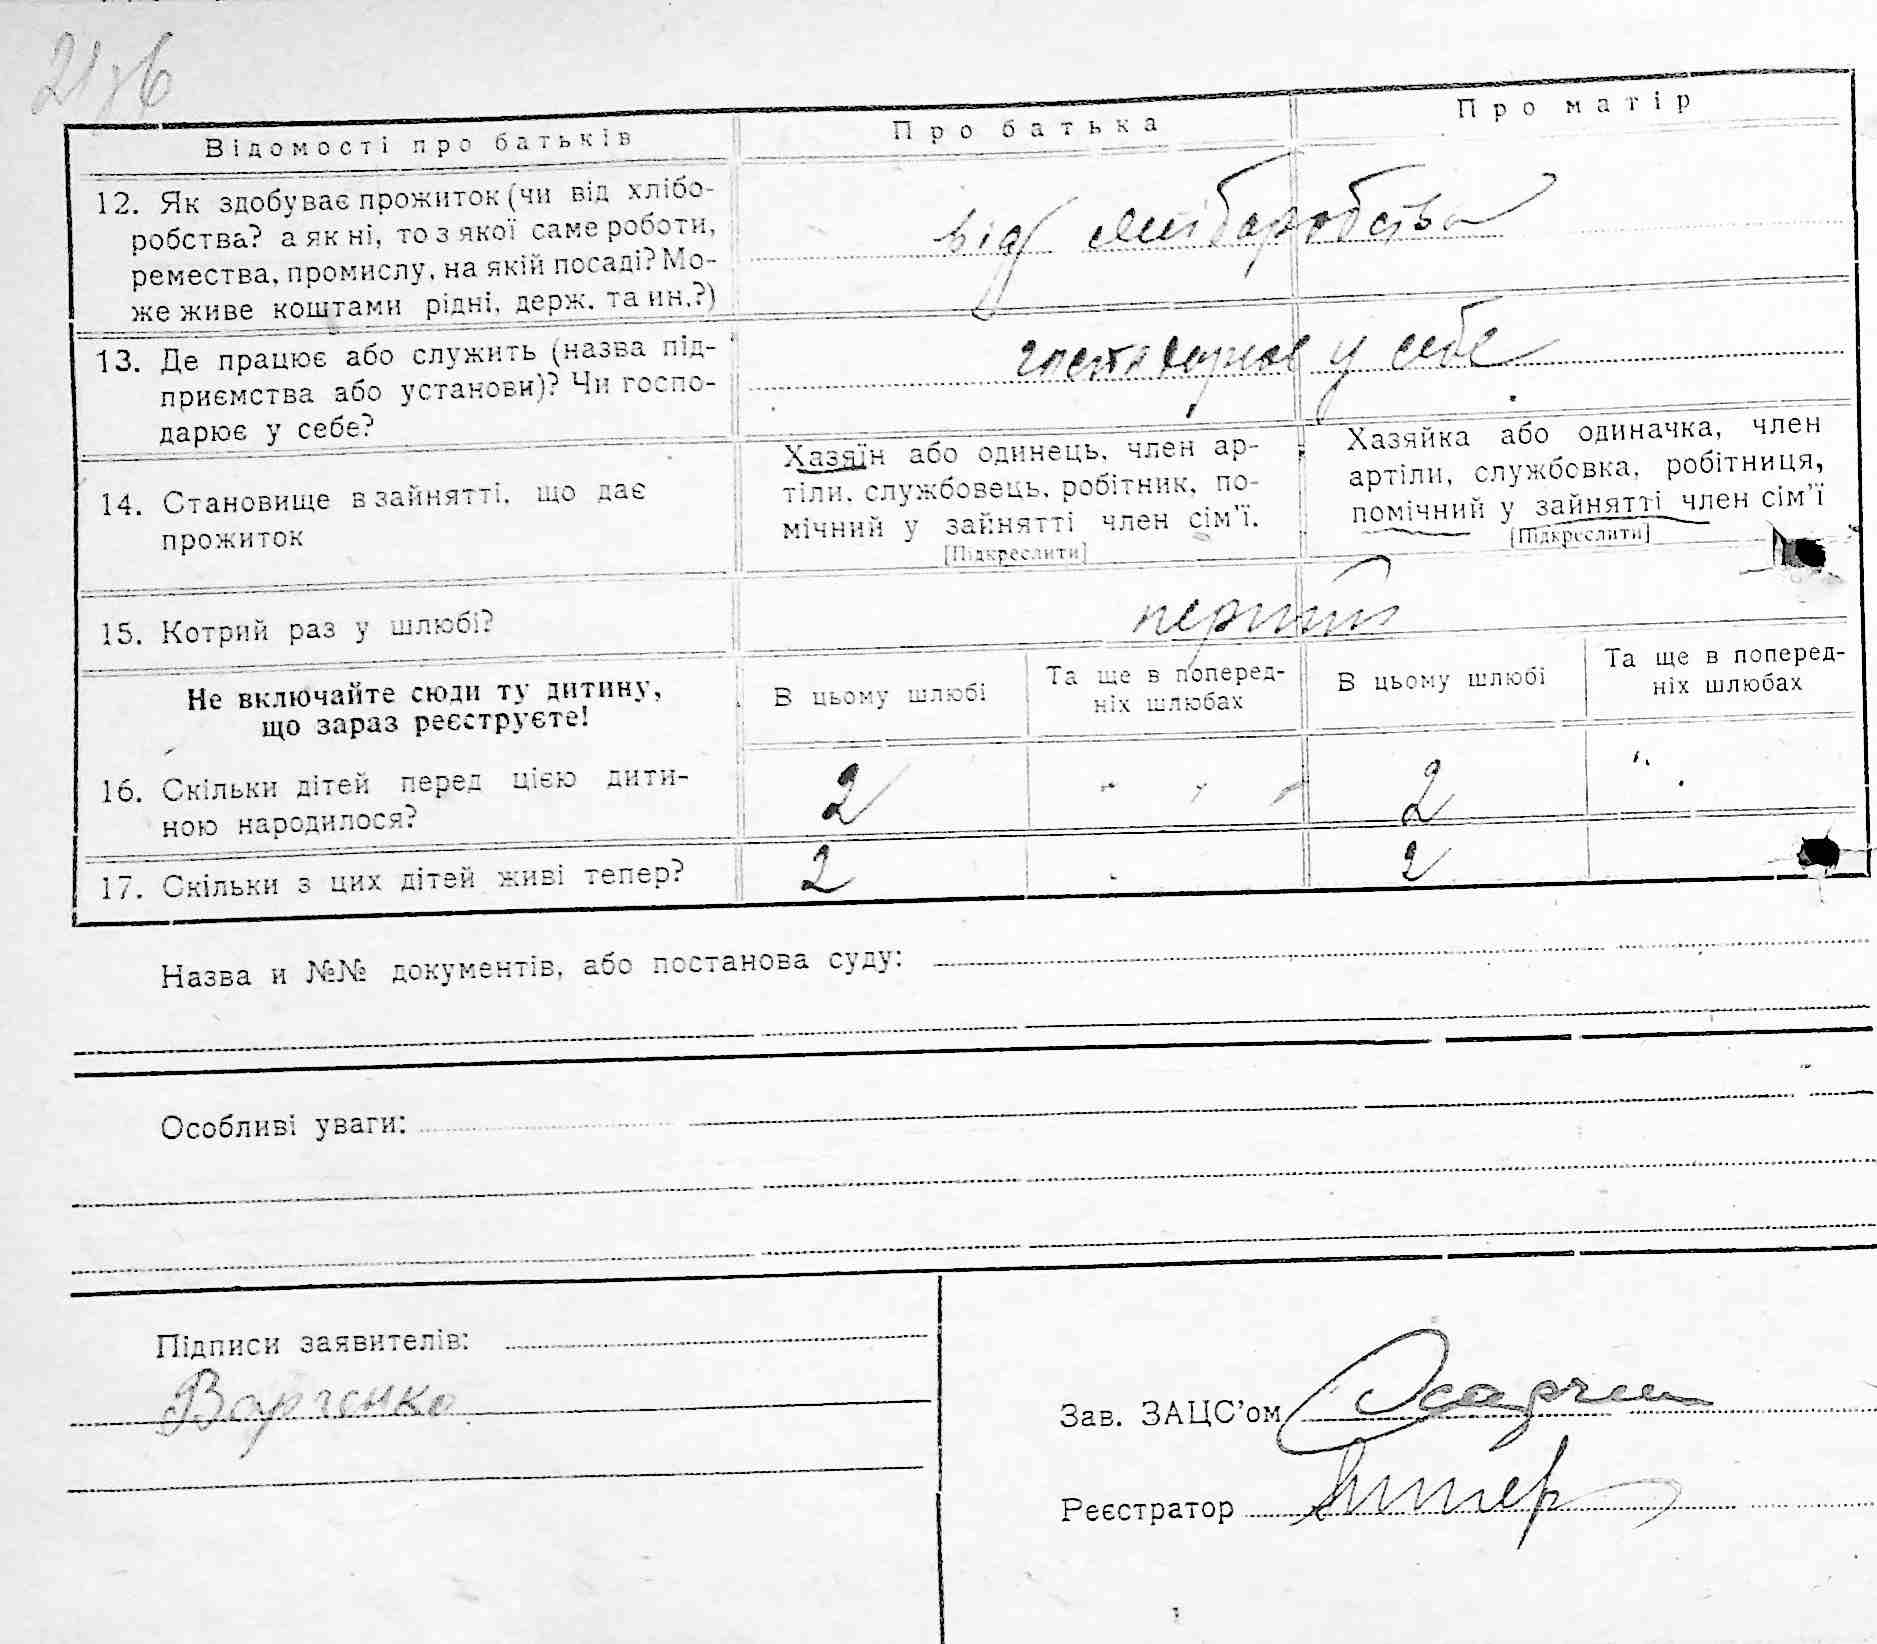 Відомості про батьків
Про батька
Про матір
12. Як здобуває прожиток (чи від хлібо-
робства? а як ні, то з якої саме роботи,
ремества, промислу, на якій посаді? Мо-
же живе коштами рідні, держ. та ин.?)
від хліборобства
13. Де працює або служить (назва під-
приємства або установи)? Чи госпо-
дарює у себе?
господарює у себе
14. Становище в зайнятті, що дає
прожиток
Хазяїн або одинець, член ар-
тіли, службовець, робітник, по-
мічний у зайнятті член сім'ї.
[Підкреслити]
Хазяйка або одиначка, член
артіли, службовка, робітниця,
помічний у зайнятті член сім'ї
[Підкреслити]
15. Котрий раз у шлюбі?
перший
Не включайте сюди ту дитину,
що зараз реєструєте!
В цьому шлюбі
Та ще в поперед-
ніх шлюбах
В цьому шлюбі
Та ще в поперед-
ніх шлюбах
16. Скільки дітей перед цією дити-
ною народилося?
2
2
17. Скільки з цих дітей живі тепер?
2
2
Назва и №№ документів, або постанова суду:
Особливі уваги:
Підписи заявителів:
Варченко
Зав. ЗАЦС'ом
Реєстратор